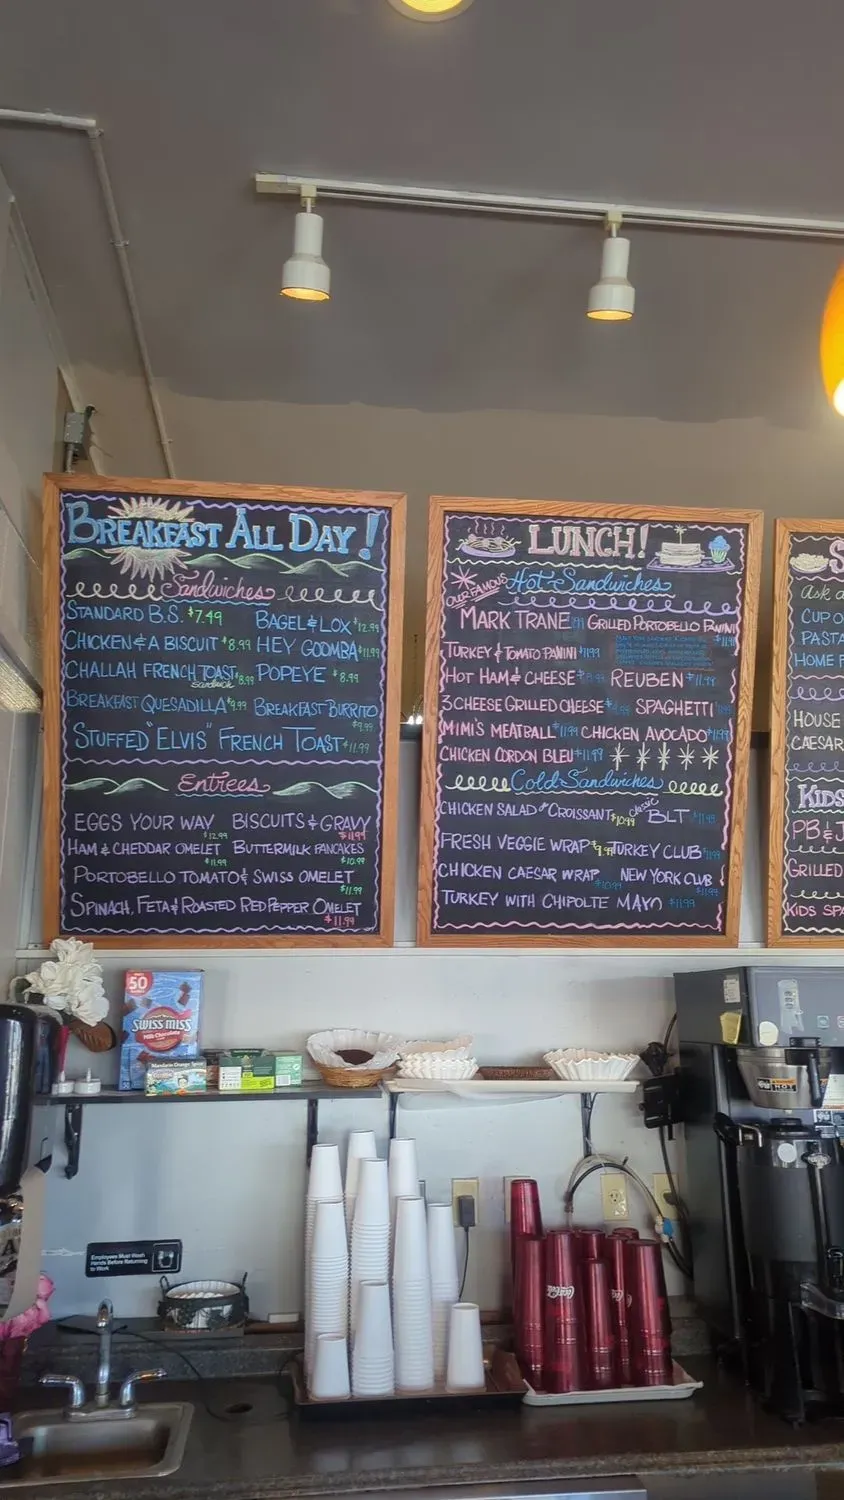 BREAKFAST ALL DAY!
Sandwiches
STANDARD B.S. $7.49
BAGEL & LOX $12.99
CHICKEN & A BISCUIT $8.99
HEY GOOMBA $11.99
CHALLAH FRENCH TOAST sandwich $8.99
POPEYE $8.99
BREAKFAST QUESADILLA $9.99
BREAKFAST BURRITO $9.99
STUFFED "ELVIS" FRENCH TOAST $11.99
Entrees
EGGS YOUR WAY $12.99
BISCUITS & GRAVY $11.99
HAM & CHEDDAR OMELET $11.99
BUTTERMILK PANCAKES $10.99
PORTOBELLO TOMATO & SWISS OMELET $11.99
SPINACH, FETA & ROASTED RED PEPPER OMELET $11.99
LUNCH!
OUR FAMOUS Hot Sandwiches
MARK TRANE
GRILLED PORTOBELLO PANINI $11.99
TURKEY & TOMATO PANINI $11.99
HOT HAM & CHEESE
REUBEN $11.99
3 CHEESE GRILLED CHEESE
SPAGHETTI
MIMI'S MEATBALL $11.99
CHICKEN AVOCADO $11.99
CHICKEN CORDON BLEU $11.99
Cold Sandwiches
CHICKEN SALAD on CROISSANT $10.99
Classic BLT $11.99
FRESH VEGGIE WRAP $9.99
TURKEY CLUB $11.99
CHICKEN CAESAR WRAP $10.99
NEW YORK CLUB $11.99
TURKEY WITH CHIPOLTE MAYO $11.99
S
Ask a
CUP O
PASTA
HOME F
HOUSE
CAESAR
KIDS
PB & J
GRILLED
KIDS SPA
50
SWISS MISS
Milk Chocolate
Mandarin Orange Spice
Employees Must Wash
Hands Before Returning
to Work
Coca-Cola
HOT